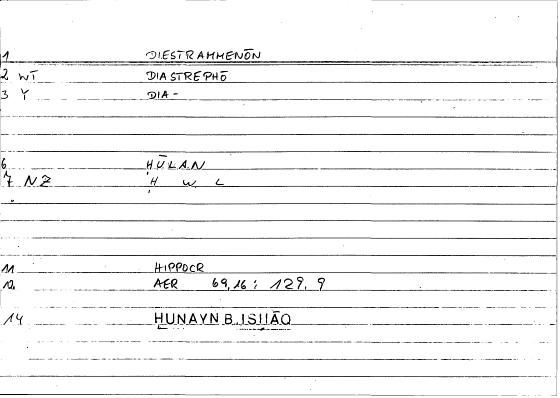 1 DIESTRAMMENŌN
2 WT DIASTREPHŌ
3 Y DIA-
6 ḤŪLĀN
7 NZ Ḥ W L
11 HIPPOCR
12 AER 69,16 : 129,9
14 ḤUNAYN B. ISḤĀQ